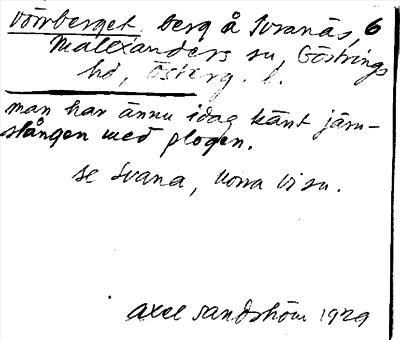 Vörrberget, berg å Svanäs, 6
Malexanders sn, Göstrings
hd, Österg. l.
man har ännu idag känt järn-
stången med plogen.
se Svana, Norra Vi sn.
Axel Sandström 1929